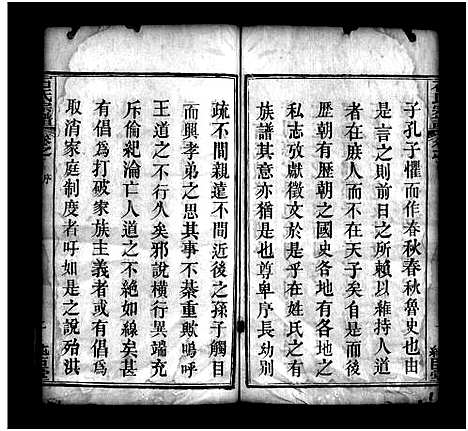 子孔子懼而作春秋春秋魯史也由
是言之則前日之所賴以維持人道
而不在庶人者不在天子矣自時厥後
歷朝有歷朝之國史各地有各地之
私志攷獻徵文於是乎在姓氏之有
族譜其意亦猶是也尊卑序長幼別
疏不間親遠不間近後之孫子觸目
而興孝弟之思其事不綦重歟嗚呼
王道之不行久矣邪說橫行異端充
斥倫紀淪亡人道之不絕如線矣甚
有倡爲打破家族主義者有或倡爲
取消家庭制度者吁如是之說殆淇
石氏宗譜
卷之
序